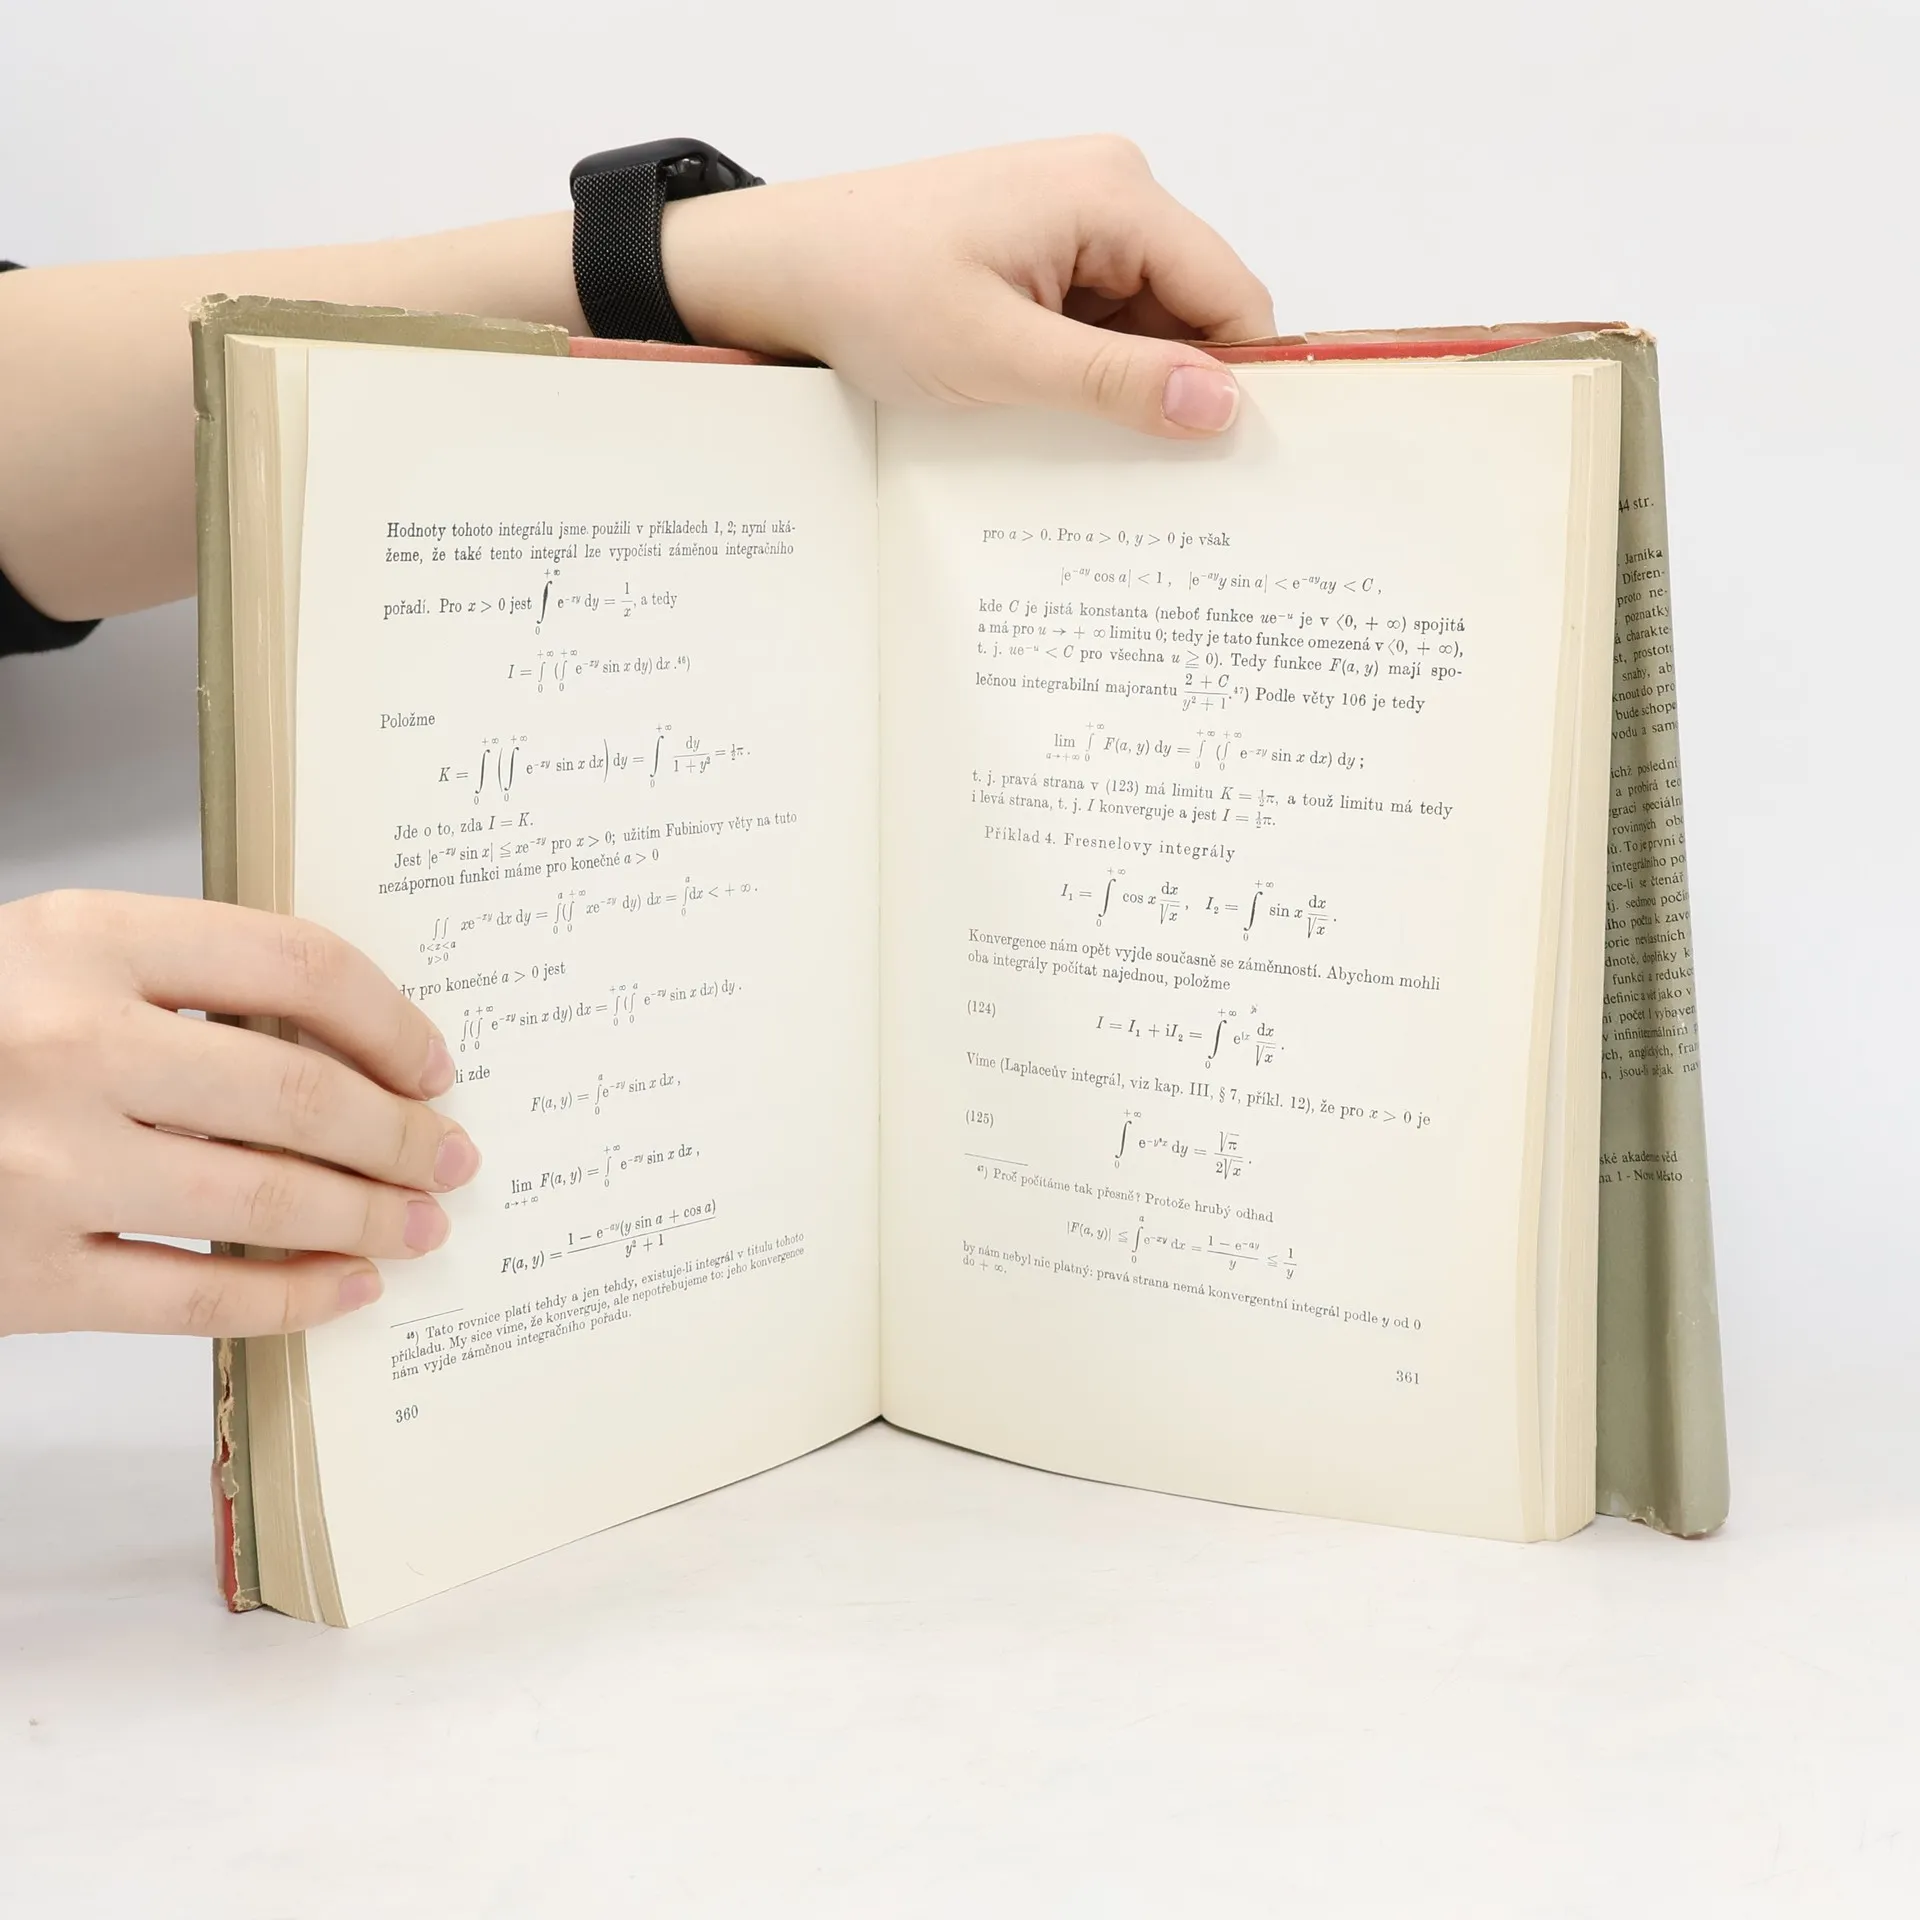 Hodnoty tohoto integrálu jsme použili v příkladech 1, 2; nyní uká-
žeme, že také tento integrál lze vypočísti záměnou integračního
pořadí. Pro x > 0 jest ∫₀^{+∞} e^{−xy} dy = 1/x, a tedy
I = ∫₀^{+∞} (∫₀^{+∞} e^{−xy} sin x dy) dx .⁴⁶)
Položme
K = ∫₀^{+∞} (∫₀^{+∞} e^{−xy} sin x dx) dy = ∫₀^{+∞} dy/(1 + y²) = ½π .
Jde o to, zda I = K.
Jest |e^{−xy} sin x| ≦ xe^{−xy} pro x > 0; užitím Fubiniovy věty na tuto
nezápornou funkci máme pro konečné a > 0
∫∫_{0<x<a, y>0} xe^{−xy} dx dy = ∫₀^a (∫₀^{+∞} xe^{−xy} dy) dx = ∫₀^a dx < + ∞ .
dy pro konečné a > 0 jest
∫₀^a (∫₀^{+∞} e^{−xy} sin x dy) dx = ∫₀^{+∞} (∫₀^a e^{−xy} sin x dx) dy .
li zde
F(a, y) = ∫₀^a e^{−xy} sin x dx ,
lim_{a→+∞} F(a, y) = ∫₀^{+∞} e^{−xy} sin x dx ,
F(a, y) = (1 − e^{−ay}(y sin a + cos a))/(y² + 1)
⁴⁶) Tato rovnice platí tehdy a jen tehdy, existuje-li integrál v titulu tohoto
příkladu. My sice víme, že konverguje, ale nepotřebujeme to: jeho konvergence
nám vyjde záměnou integračního pořadu.
360
pro a > 0. Pro a > 0, y > 0 je však
|e^{−ay} cos a| < 1 , |e^{−ay}y sin a| < e^{−ay}ay < C ,
kde C je jistá konstanta (neboť funkce ue^{−u} je v ⟨0, + ∞) spojitá
a má pro u → + ∞ limitu 0; tedy je tato funkce omezená v ⟨0, + ∞),
t. j. ue^{−u} < C pro všechna u ≧ 0). Tedy funkce F(a, y) mají spo-
lečnou integrabilní majorantu (2 + C)/(y² + 1).⁴⁷) Podle věty 106 je tedy
lim_{a→+∞} ∫₀^{+∞} F(a, y) dy = ∫₀^{+∞} (∫₀^{+∞} e^{−xy} sin x dx) dy ;
t. j. pravá strana v (123) má limitu K = ½π, a touž limitu má tedy
i levá strana, t. j. I konverguje a jest I = ½π.
Příklad 4. Fresnelovy integrály
I₁ = ∫₀^{+∞} cos x dx/√x , I₂ = ∫₀^{+∞} sin x dx/√x .
Konvergence nám opět vyjde současně se záměnností. Abychom mohli
oba integrály počítat najednou, položme
(124) I = I₁ + iI₂ = ∫₀^{+∞} e^{ix} dx/√x .
Víme (Laplaceův integrál, viz kap. III, § 7, příkl. 12), že pro x > 0 je
(125) ∫₀^{+∞} e^{−y²x} dy = √π/(2√x) .
⁴⁷) Proč počítáme tak přesně? Protože hrubý odhad
|F(a, y)| ≦ ∫₀^a e^{−xy} dx = (1 − e^{−ay})/y ≦ 1/y
by nám nebyl nic platný: pravá strana nemá konvergentní integrál podle y od 0
do + ∞.
361
44 str.
Jarníka
Diferen-
proto ne-
poznatky
charakte-
st, prostotu
snahy, ab
knout do pro
bude schope
vodu a sam
ichž poslední
a probírá teo
graci speciáln
rovinných obo
To je první č
integrálního po
ce-li se čtenář
tj. sedmou počín
ího počtu k zave
orie nevlastních
dnotě, doplňky k
funkcí a redukc
definic a vět jako v
ní počet I vybaven
v infinitesimálním p
ých, anglických, fran
h, jsou-li nějak nav
ské akademie věd
ha 1 - Nové Město